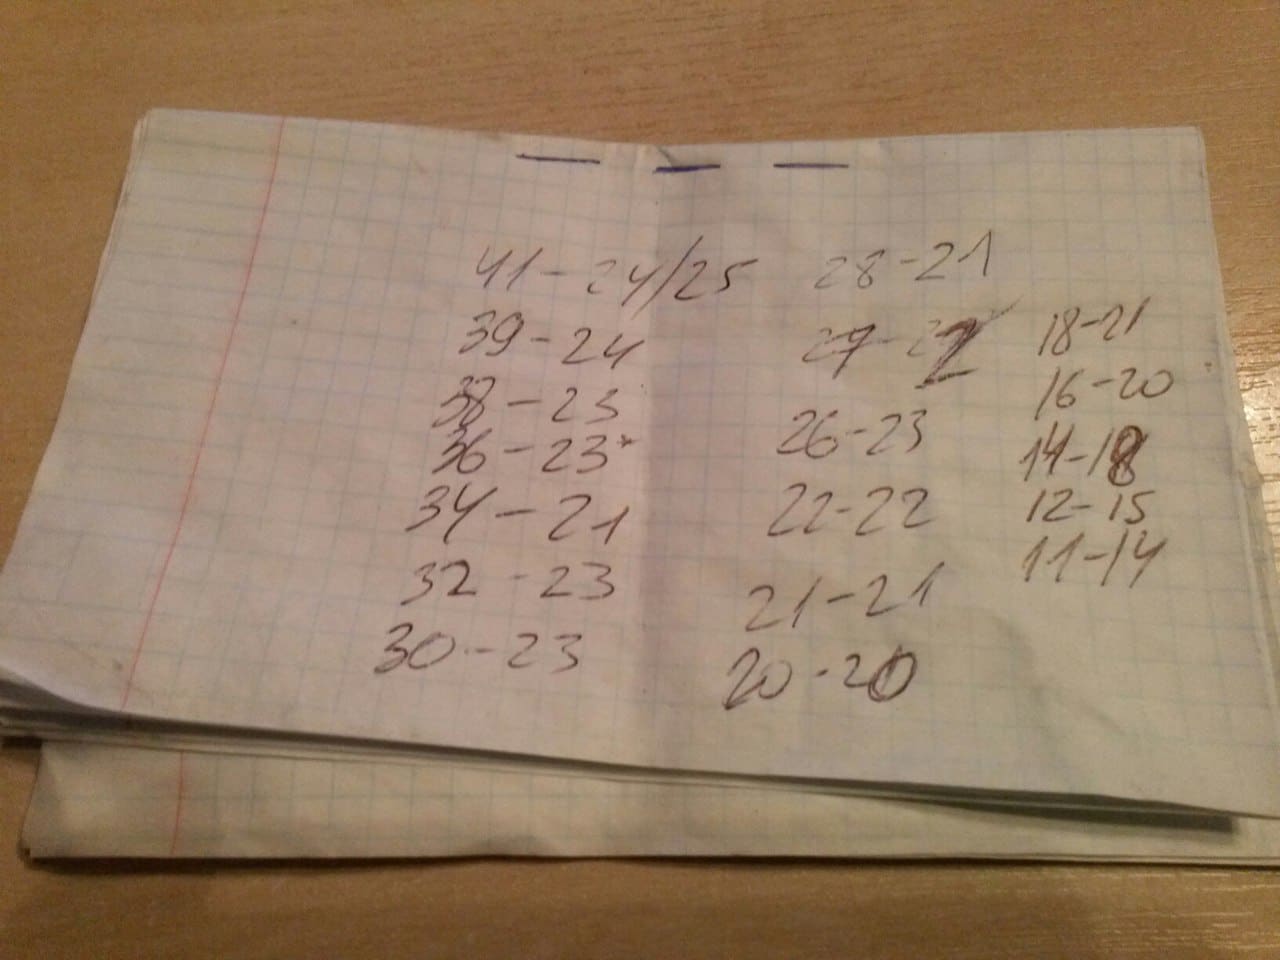 41 - 24/25
39 - 24
38 - 23
36 - 23*
34 - 21
32 - 23
30 - 23
28 - 21
27 - 22
26 - 23
22 - 22
21 - 21
20 - 20
18 - 21
16 - 20
14 - 18
12 - 15
11 - 14